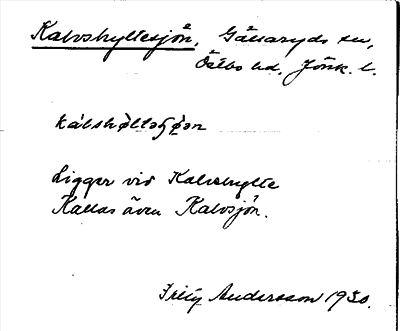 Kalvshyltesjön, Gällaryds sn,
Östbo hd, Jönk. l.
kálshøltaʃøən
Ligger vid Kalvshylte
Kallas även Kalvsjön.
Fritz Andersson 1930.